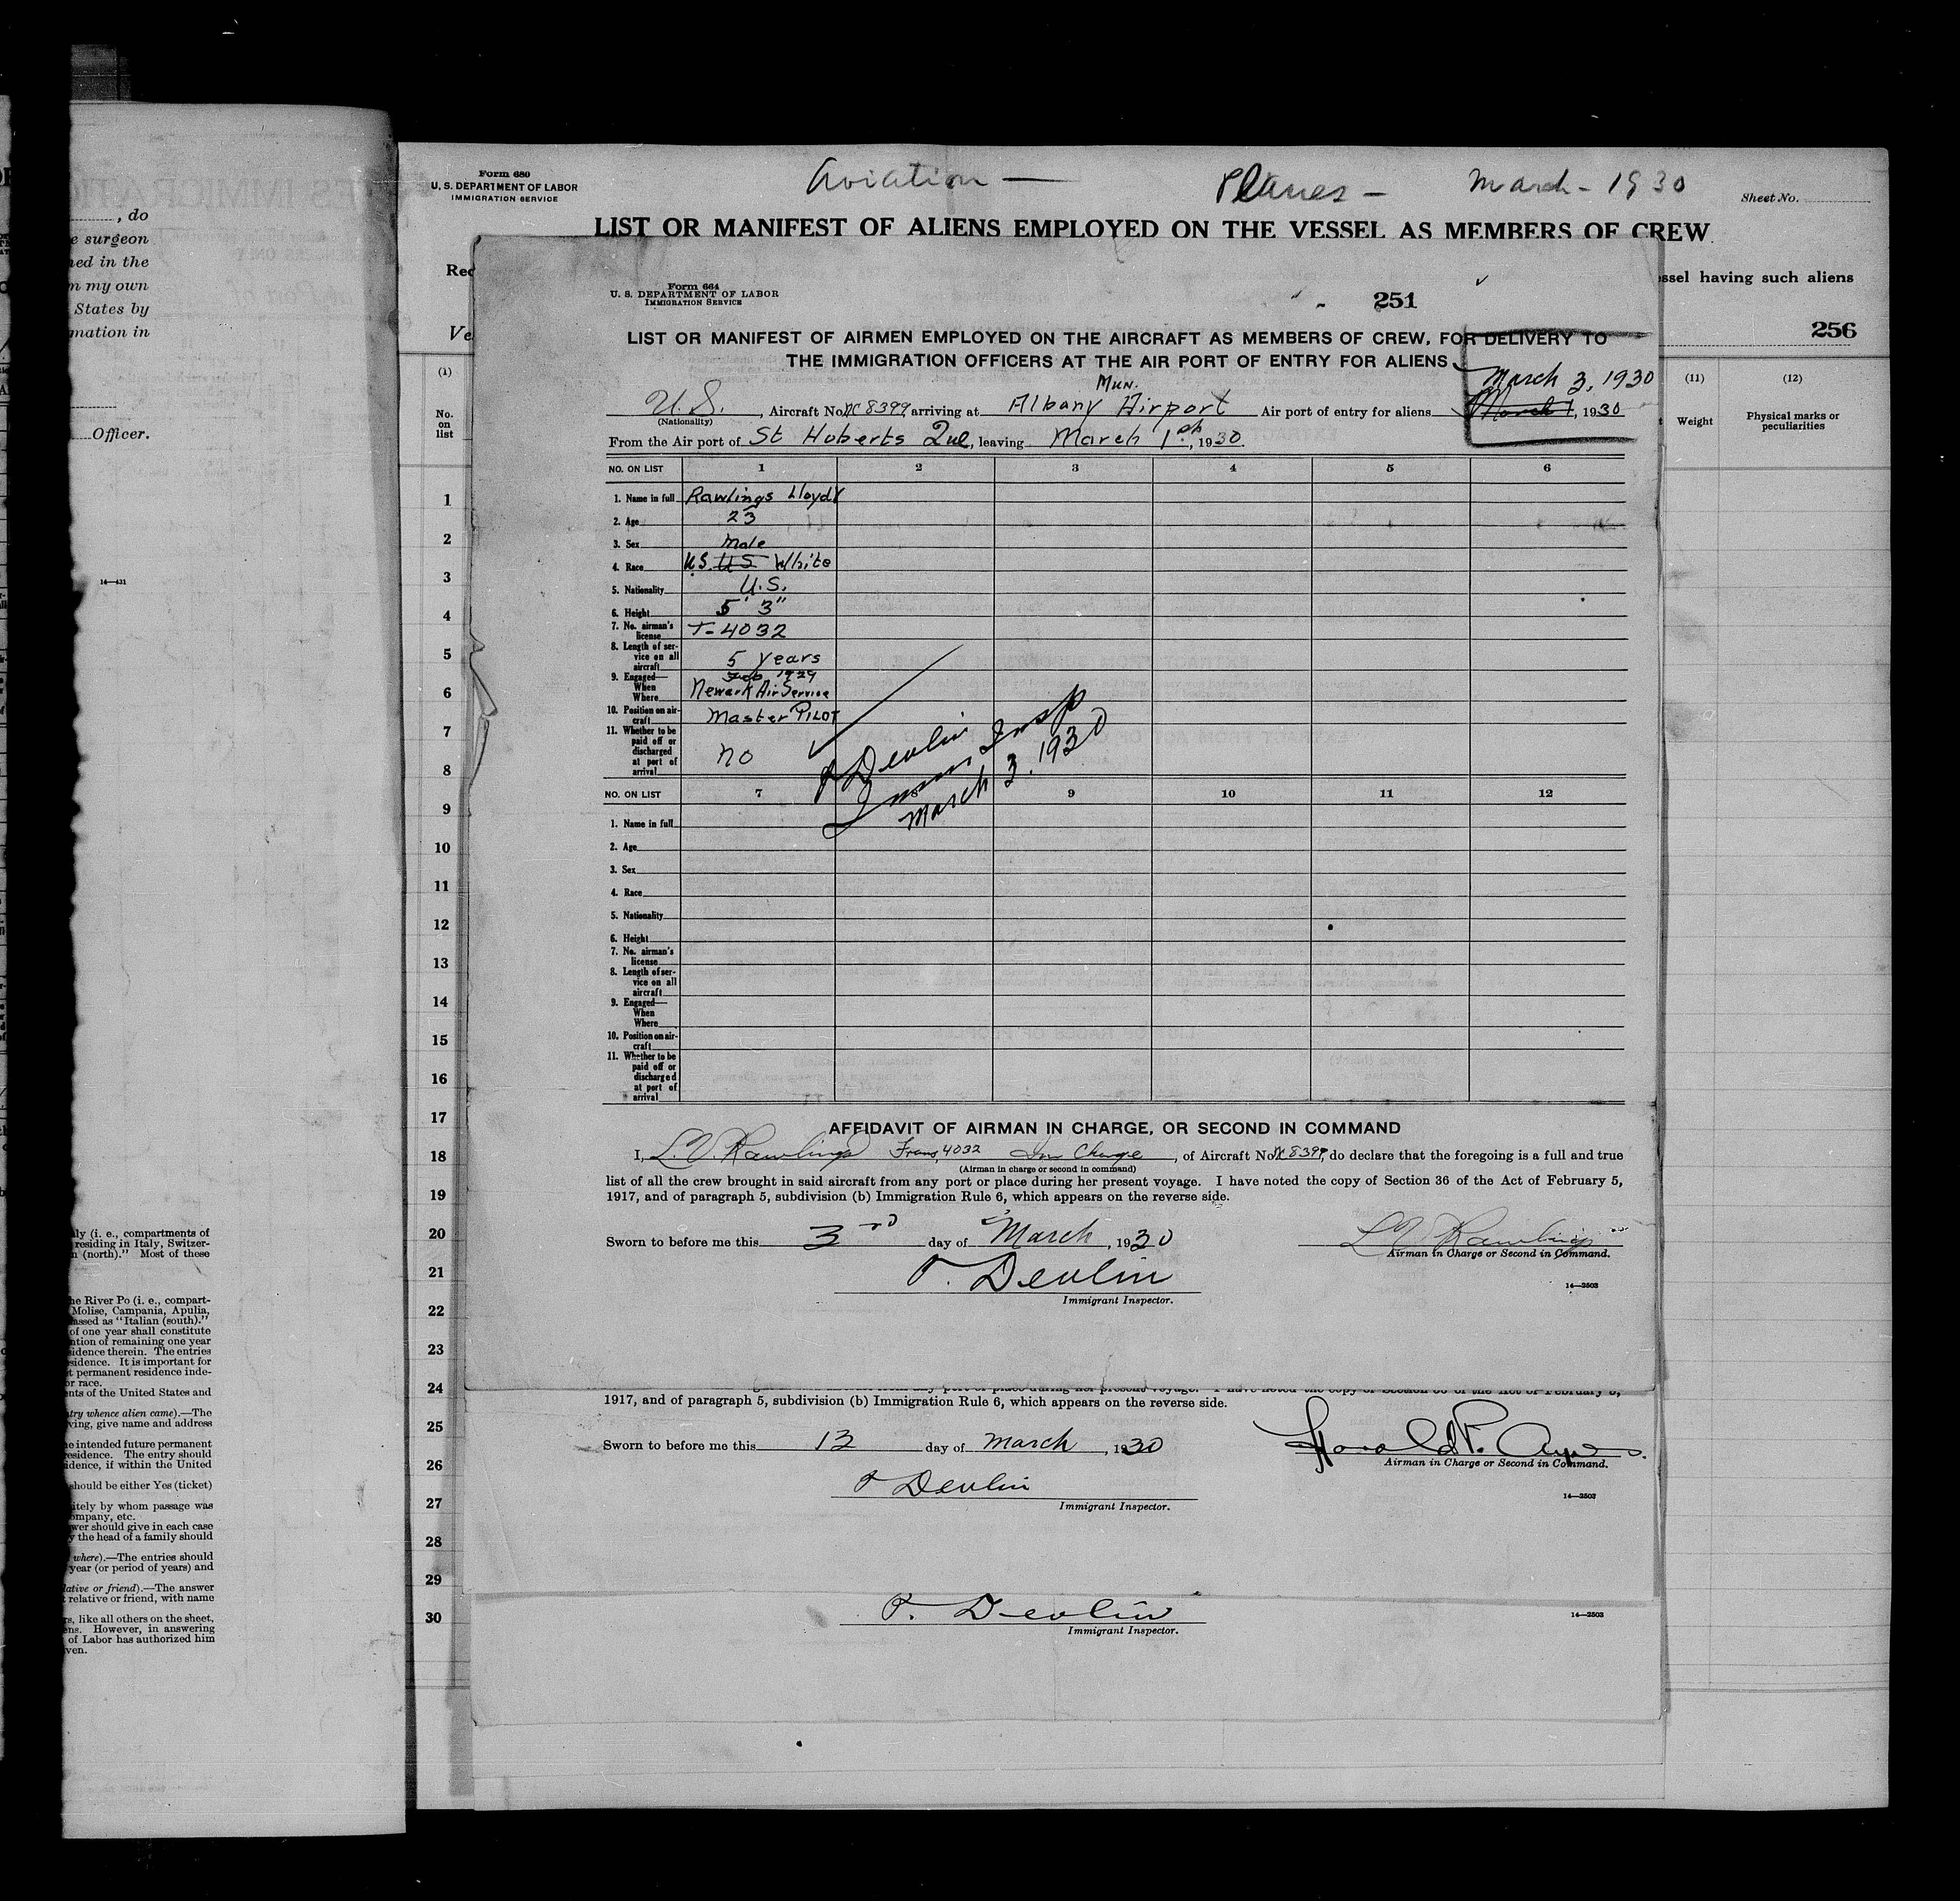 , do
e surgeon
ned in the
n my own
States by
mation in
Officer.
14—431
ly (i. e., compartments of
residing in Italy, Switzer-
n (north)." Most of these
he River Po (i. e., compart-
Molise, Campania, Apulia,
assed as "Italian (south)."
of one year shall constitute
ntion of remaining one year
sidence therein. The entries
sidence. It is important for
t permanent residence inde-
or race.
ents of the United States and
ntry whence alien came).—The
ving, give name and address
e intended future permanent
residence. The entry should
idence, if within the United
should be either Yes (ticket)
itely by whom passage was
ompany, etc.
wer should give in each case
y the head of a family should
where).—The entries should
year (or period of years) and
lative or friend).—The answer
t relative or friend, with name
s, like all others on the sheet,
ens. However, in answering
of Labor has authorized him
ven.
Aviation — Planes — March - 1930
Form 680
U. S. DEPARTMENT OF LABOR
IMMIGRATION SERVICE
Sheet No.
LIST OR MANIFEST OF ALIENS EMPLOYED ON THE VESSEL AS MEMBERS OF CREW
Rec
ssel having such aliens
Ve
256
(1) (11) (12)
No. on list
Weight
Physical marks or peculiarities
1
2
3
4
5
6
7
8
9
10
11
12
13
14
15
16
17
18
19
20
21
22
23
24
25
26
27
28
29
30
Form 664
U. S. DEPARTMENT OF LABOR
IMMIGRATION SERVICE
251
LIST OR MANIFEST OF AIRMEN EMPLOYED ON THE AIRCRAFT AS MEMBERS OF CREW, FOR DELIVERY TO
THE IMMIGRATION OFFICERS AT THE AIR PORT OF ENTRY FOR ALIENS
March 3, 1930
Mun.
U.S., Aircraft No. NC 8399 arriving at Albany Airport Air port of entry for aliens March 1, 1930
(Nationality)
From the Air port of St Huberts Que, leaving March 1, 1930.
NO. ON LIST 1 2 3 4 5 6
1. Name in full Rawlings Lloyd V
2. Age 23
3. Sex Male
4. Race U.S. U S White
5. Nationality U.S.
6. Height 5' 3"
7. No. airman's license T-4032
8. Length of service on all aircraft 5 years
9. Engaged—When Feb 1929
Where Newark Air Service
10. Position on aircraft Master PILOT
11. Whether to be paid off or discharged at port of arrival no
P Devlin
Imm Insp
March 3, 1930
NO. ON LIST 7 8 9 10 11 12
1. Name in full
2. Age
3. Sex
4. Race
5. Nationality
6. Height
7. No. airman's license
8. Length of service on all aircraft
9. Engaged—When
Where
10. Position on aircraft
11. Whether to be paid off or discharged at port of arrival
AFFIDAVIT OF AIRMAN IN CHARGE, OR SECOND IN COMMAND
I, L. V. Rawlings Trans. 4032 In Charge, of Aircraft No. NC 8399, do declare that the foregoing is a full and true
(Airman in charge or second in command)
list of all the crew brought in said aircraft from any port or place during her present voyage. I have noted the copy of Section 36 of the Act of February 5,
1917, and of paragraph 5, subdivision (b) Immigration Rule 6, which appears on the reverse side.
Sworn to before me this 3rd day of March, 1930
L V Rawlings
Airman in Charge or Second in Command.
P. Devlin
Immigrant Inspector.
14—2503
1917, and of paragraph 5, subdivision (b) Immigration Rule 6, which appears on the reverse side.
Sworn to before me this 13 day of March, 1930
Harold P. Ayres
Airman in Charge or Second in Command.
P Devlin
Immigrant Inspector.
14—2503
P. Devlin
Immigrant Inspector.
14—2503